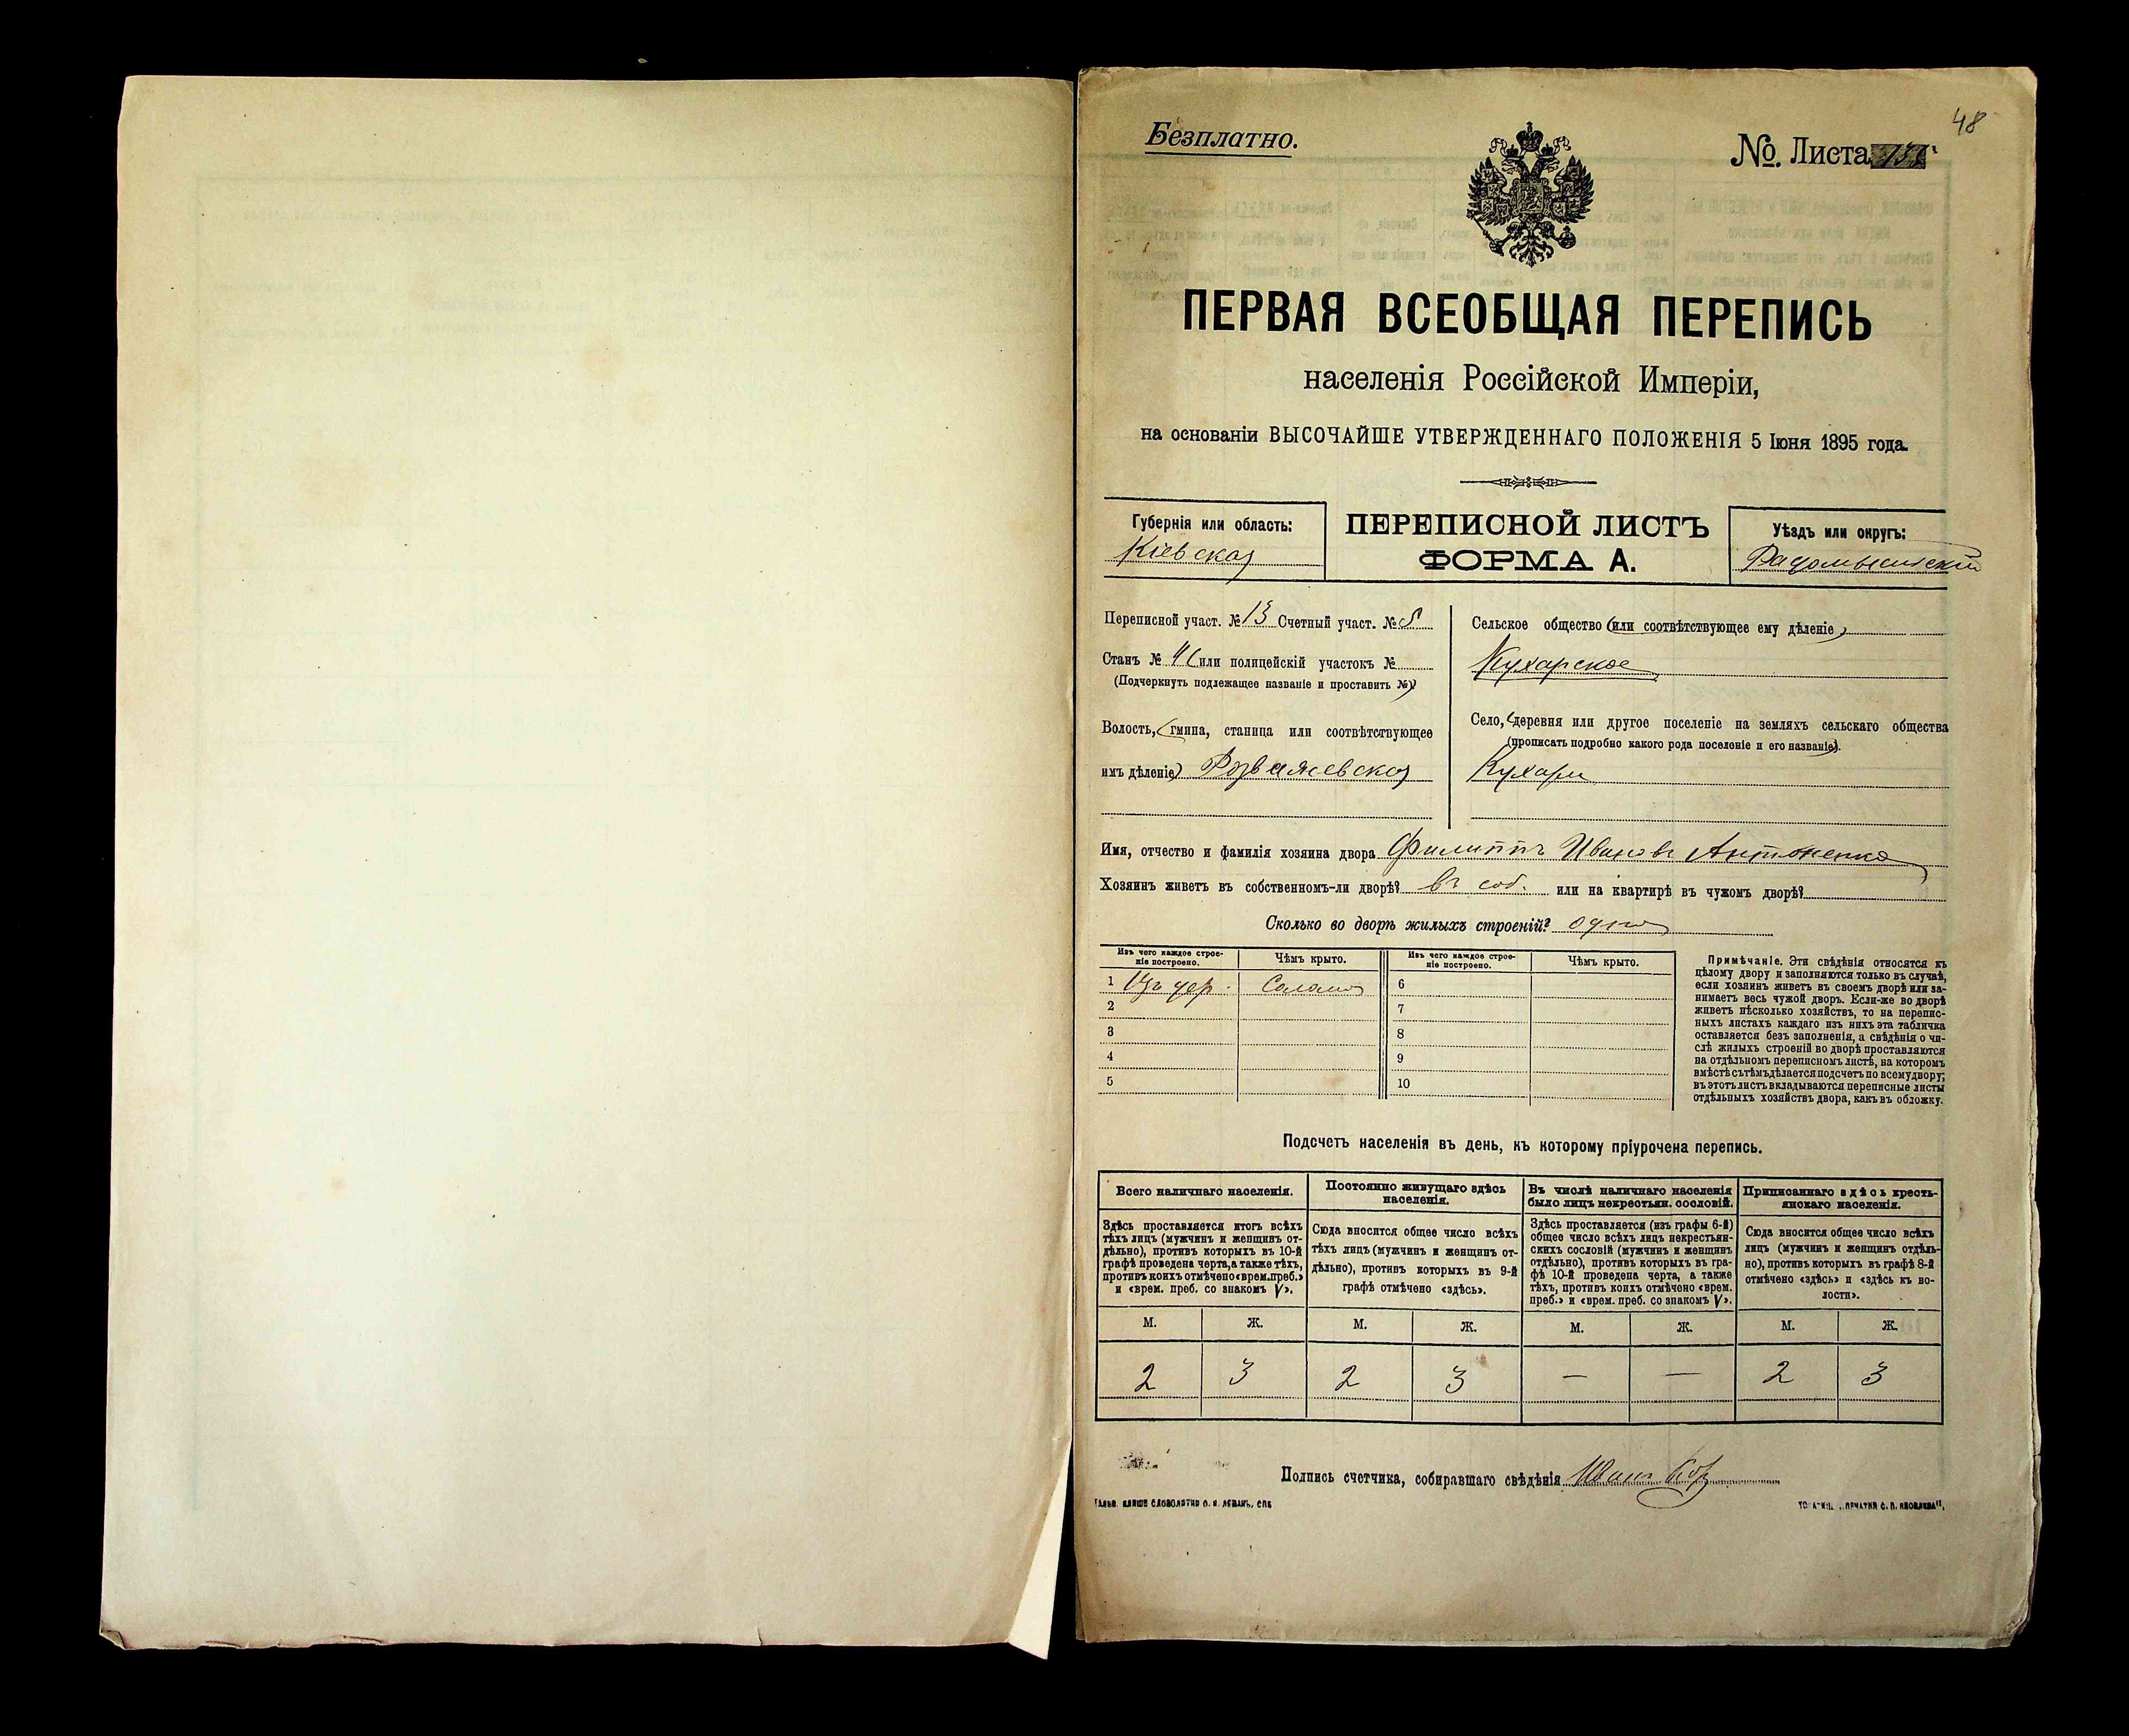 48
Безплатно.
№. Листа
ПЕРВАЯ ВСЕОБЩАЯ ПЕРЕПИСЬ
населенія Россійской Имперіи,
на основаніи ВЫСОЧАЙШЕ УТВЕРЖДЕННАГО ПОЛОЖЕНІЯ 5 Іюня 1895 года.
Губернія или область:
Кіевская
ПЕРЕПИСНОЙ ЛИСТЪ
ФОРМА А.
Уѣздъ или округъ:
Радомысльскій
Переписной участ. № 13 Счетный участ. №
Станъ № или полицейскій участокъ №
(Подчеркнуть подлежащее названіе и проставить №)
Волость, (гмина, станица или соотвѣтствующее
имъ дѣленіе) Розважевская
Сельское общество (или соотвѣтствующее ему дѣленіе)
Кухарское
Село, (деревня или другое поселеніе на земляхъ сельскаго общества
(прописать подробно какого рода поселеніе и его названіе).
Кухари
Имя, отчество и фамилія хозяина двора Филиппъ Ивановъ Антоненко
Хозяинъ живетъ въ собственномъ-ли дворѣ? въ соб. или на квартирѣ въ чужомъ дворѣ?
Сколько во дворѣ жилыхъ строеній? одно
Изъ чего каждое строе-
ніе построено.
Чѣмъ крыто.
Изъ чего каждое строе-
ніе построено.
Чѣмъ крыто.
1 Изъ дер. Солома 6
2 7
3 8
4 9
5 10
Примѣчаніе. Эти свѣдѣнія относятся къ
цѣлому двору и заполняются только въ случаѣ,
если хозяинъ живетъ въ своемъ дворѣ или за-
нимаетъ весь чужой дворъ. Если-же во дворѣ
живетъ нѣсколько хозяйствъ, то на перепис-
ныхъ листахъ каждаго изъ нихъ эта табличка
оставляется безъ заполненія, а свѣдѣнія о чи-
слѣ жилыхъ строеній во дворѣ проставляются
на отдѣльномъ переписномъ листѣ, на которомъ
вмѣстѣ съ тѣмъ дѣлается подсчетъ по всему двору;
въ этотъ листъ вкладываются переписные листы
отдѣльныхъ хозяйствъ двора, какъ въ обложку.
Подсчетъ населенія въ день, къ которому пріурочена перепись.
Всего наличнаго населенія.
Здѣсь проставляется итогъ всѣхъ
тѣхъ лицъ (мужчинъ и женщинъ от-
дѣльно), противъ которыхъ въ 10-й
графѣ проведена черта, а также тѣхъ,
противъ коихъ отмѣчено «врем. преб.»
и «врем. преб. со знакомъ V».
Постоянно живущаго здѣсь
населенія.
Сюда вносится общее число всѣхъ
тѣхъ лицъ (мужчинъ и женщинъ от-
дѣльно), противъ которыхъ въ 9-й
графѣ отмѣчено «здѣсь».
Въ числѣ наличнаго населенія
было лицъ некрестьян. сословій.
Здѣсь проставляется (изъ графы 6-й)
общее число всѣхъ лицъ некрестьян-
скихъ сословій (мужчинъ и женщинъ
отдѣльно), противъ которыхъ въ гра-
фѣ 10-й проведена черта, а также
тѣхъ, противъ коихъ отмѣчено «врем.
преб.» и «врем. преб. со знакомъ V».
Приписаннаго здѣсь кресть-
янскаго населенія.
Сюда вносится общее число всѣхъ
лицъ (мужчинъ и женщинъ отдѣль-
но), противъ которыхъ въ графѣ 8-й
отмѣчено «здѣсь» и «здѣсь къ во-
лости».
М. Ж. М. Ж. М. Ж. М. Ж.
2 3 2 3 — — 2 3
Подпись счетчика, собиравшаго свѣдѣнія Иванъ